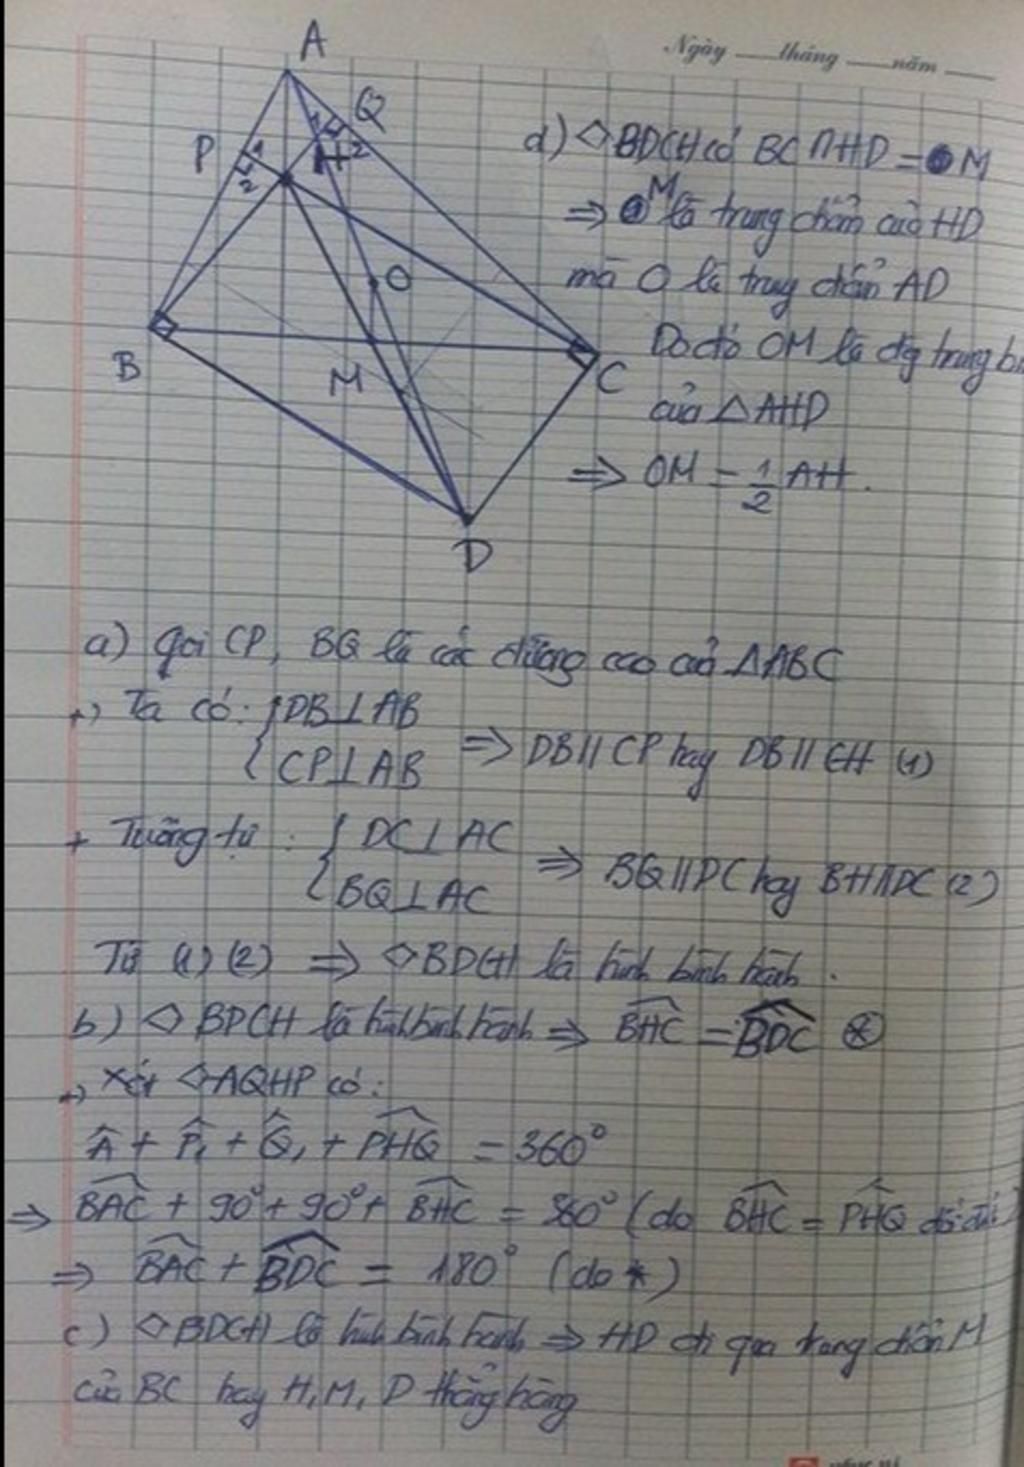 Ngày tháng năm
A
Q
P
1
2
1
2
H
O
B
M
C
D
d) ◇BDCH có BC∩HD = M
⇒ M là trung điểm của HD
mà O là trung điểm AD
Do đó OM là đg trung b
của △AHD
⇒ OM = 1/2 AH.
a) Gọi CP, BQ là các đường cao của △ABC
+) Ta có: { DB⊥AB
CP⊥AB ⇒ DB//CP hay DB//CH (1)
+ Tương tự : { DC⊥AC
BQ⊥AC ⇒ BQ//DC hay BH//DC (2)
Từ (1) (2) ⇒ ◇BDCH là hình bình hành.
b) ◇ BDCH là hình bình hành ⇒ BHC = BDC (*)
+) Xét ◇AQHP có:
Â + P̂₁ + Q̂₁ + PHQ = 360°
⇒ BAC + 90° + 90° + BHC = 360° (do BHC = PHQ đối đỉnh)
⇒ BAC + BDC = 180° (do *)
c) ◇BDCH là hình bình hành ⇒ HD đi qua trung điểm M
của BC hay H, M, D thẳng hàng